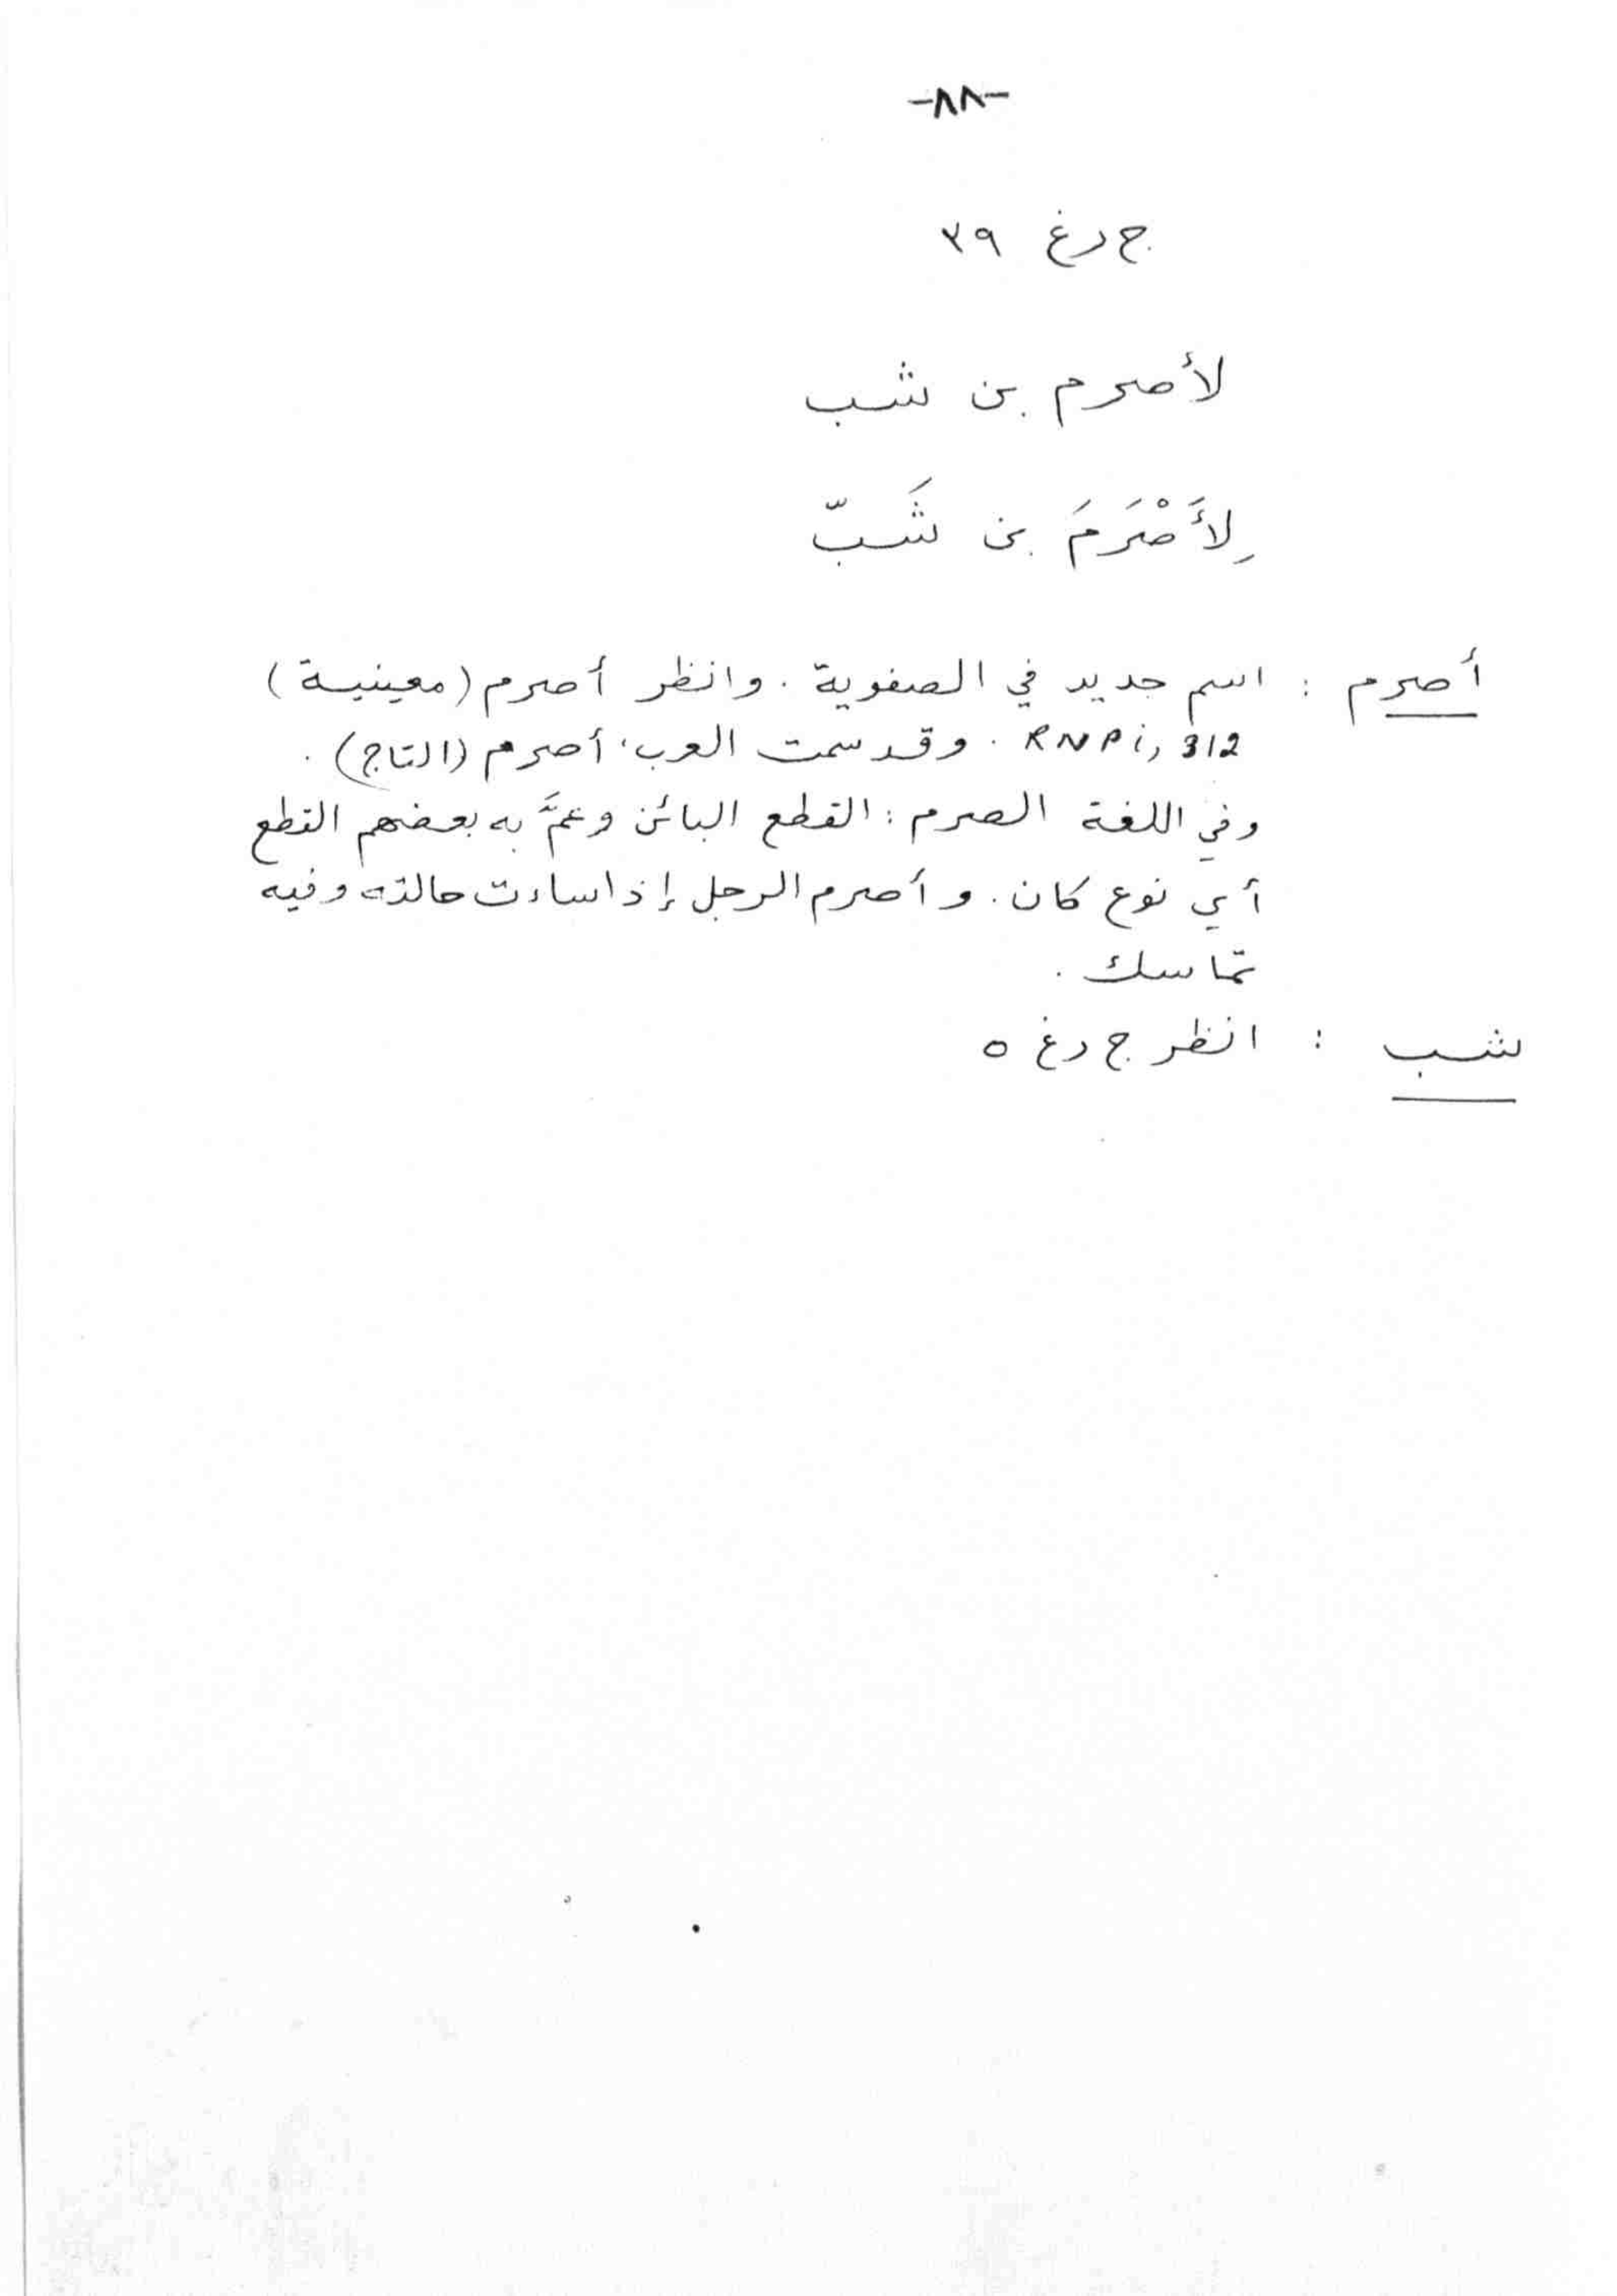 -٨٨-
ج رغ ٣٩
لأصرم بن شب
لِأَصْرَمَ بن شَبّ
أصرم : اسم جديد في الصفوية . وانظر أصرم (معينية)
RNP i, 312 . وقد سمت العرب، أصرم (التاج) .
وفي اللغة الصرم : القطع البائن وعمَّ به بعضهم القطع
أي نوع كان . وأصرم الرجل إذا ساءت حالته وفيه
تماسك .
شب : انظر ج رغ ٥